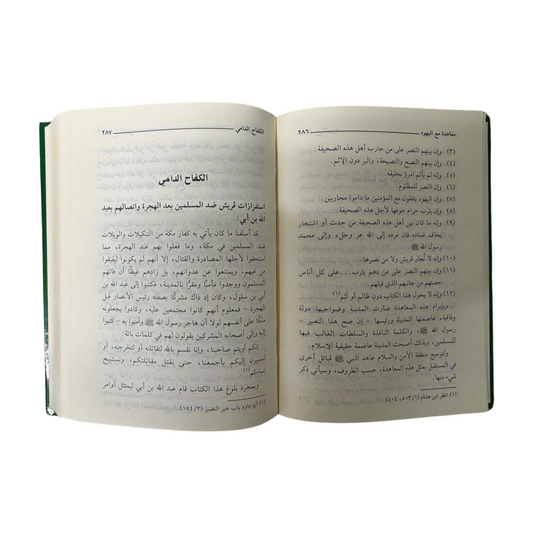 معاهدة مع اليهود ٢٨٦
(٣) وإن بينهم النصر على من حارب أهل هذه الصحيفة.
(٤) وإن بينهم النصح والنصيحة، والبر دون الإثم.
(٥) وإنه لم يأثم امرؤ بحليفه.
(٦) وإن النصر للمظلوم.
(٧) وإن اليهود يتفقون مع المؤمنين ما داموا محاربين.
(٨) وإن يثرب حرام جوفها لأجل هذه الصحيفة.
(٩) وإنه ما كان بين أهل هذه الصحيفة من حدث أو اشتجار
يخاف فساده فإن مرده إلى الله عز وجل، وإلى محمد
رسول الله ﷺ.
(١٠) وإنه لا تُجار قريش ولا من نصرها.
(١١) وإن بينهم النصر على من دهم يثرب.. على كل أناس
حصتهم من جانبهم الذي قبلهم.
(١٢) وإنه لا يحول هذا الكتاب دون ظالم أو آثم(١).
وبإبرام هذه المعاهدة صارت المدينة وضواحيها دولة
وفاقية، عاصمتها المدينة ورئيسها - إن صح هذا التعبير -
رسول الله ﷺ، والكلمة النافذة والسلطان الغالب فيها
للمسلمين، وبذلك أصبحت المدينة عاصمة حقيقية للإسلام.
ولتوسيع منطقة الأمن والسلام عاهد النبي ﷺ قبائل أخرى
في المستقبل بمثل هذه المعاهدة، حسب الظروف، وسيأتي ذكر
شيء منها.
(١) انظر ابن هشام (١/ ٥٠٣، ٥٠٤).
الكفاح الدامي ٢٨٧
الكفاح الدامي
استفزازات قريش ضد المسلمين بعد الهجرة واتصالهم بعبد
الله بن أبي:
قد أسلفنا ما كان يأتي به كفار مكة من التنكيلات والويلات
ضد المسلمين في مكة، وما فعلوا بهم عند الهجرة، مما
استحقوا لأجلها المصادرة والقتال، إلا أنهم لم يكونوا ليفيقوا
من غيهم، ويمتنعوا عن عدوانهم، بل زادهم غيظًا أن فاتهم
المسلمون ووجدوا مأمنًا ومقرًا بالمدينة، فكتبوا إلى عبد الله بن
أبي بن سلول، وكان إذ ذاك مشركًا بصفته رئيس الأنصار قبل
الهجرة - فمعلوم أنهم كانوا مجتمعين عليه، وكادوا يجعلونه
ملكًا على أنفسهم لولا أن هاجر رسول الله ﷺ وآمنوا به - كتبوا
إليه وإلى أصحابه المشركين يقولون لهم في كلمات باتة:
إنكم آويتم صاحبنا، وإنا نقسم بالله لتقاتلنه أو لتخرجنه، أو
لنسيرن إليكم بأجمعنا، حتى نقتل مقاتلتكم، ونستبيح
نساءكم(١).
وبمجرد بلوغ هذا الكتاب قام عبد الله بن أبي ليمتثل أوامر
(١) أبو داود باب خبر النضير (٢/ ١٥٤).